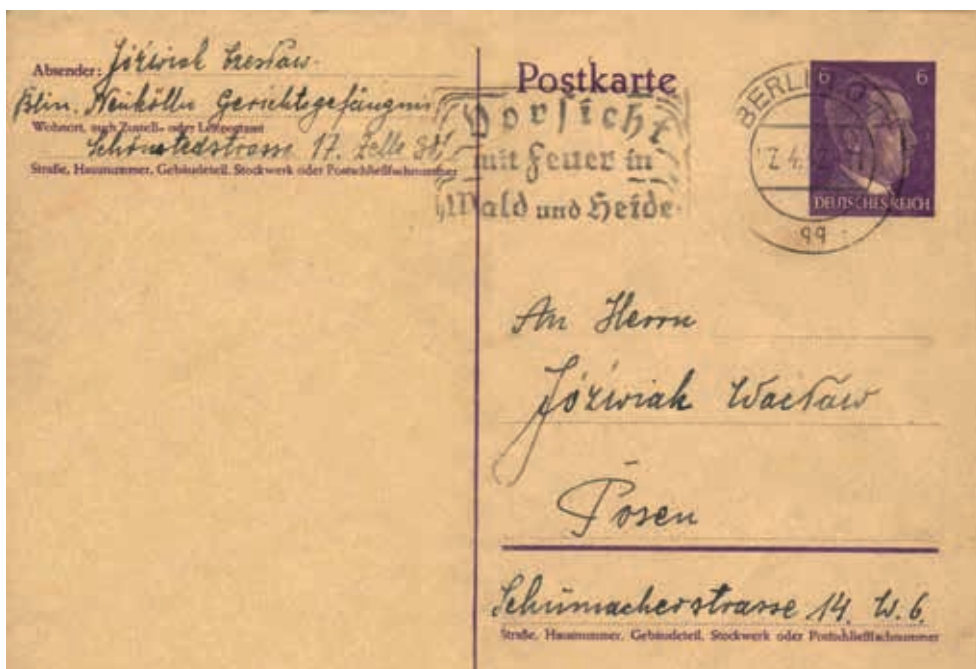 Absender: Jóźwiak Czesław.
Bln. Neukölln Gerichtsgefängnis
Wohnort, auch Zustell- oder Leitpostamt
Schönstedstrasse 17. Zelle
Straße, Hausnummer, Gebäudeteil, Stockwerk oder Postschließfachnummer
Postkarte
Vorsicht
mit Feuer in
Wald und Heide
6 6
BERLIN
DEUTSCHES REICH
An Herrn
Jóźwiak Wacław
Posen
Schumacherstrasse 14. W. 6.
Straße, Hausnummer, Gebäudeteil, Stockwerk oder Postschließfachnummer